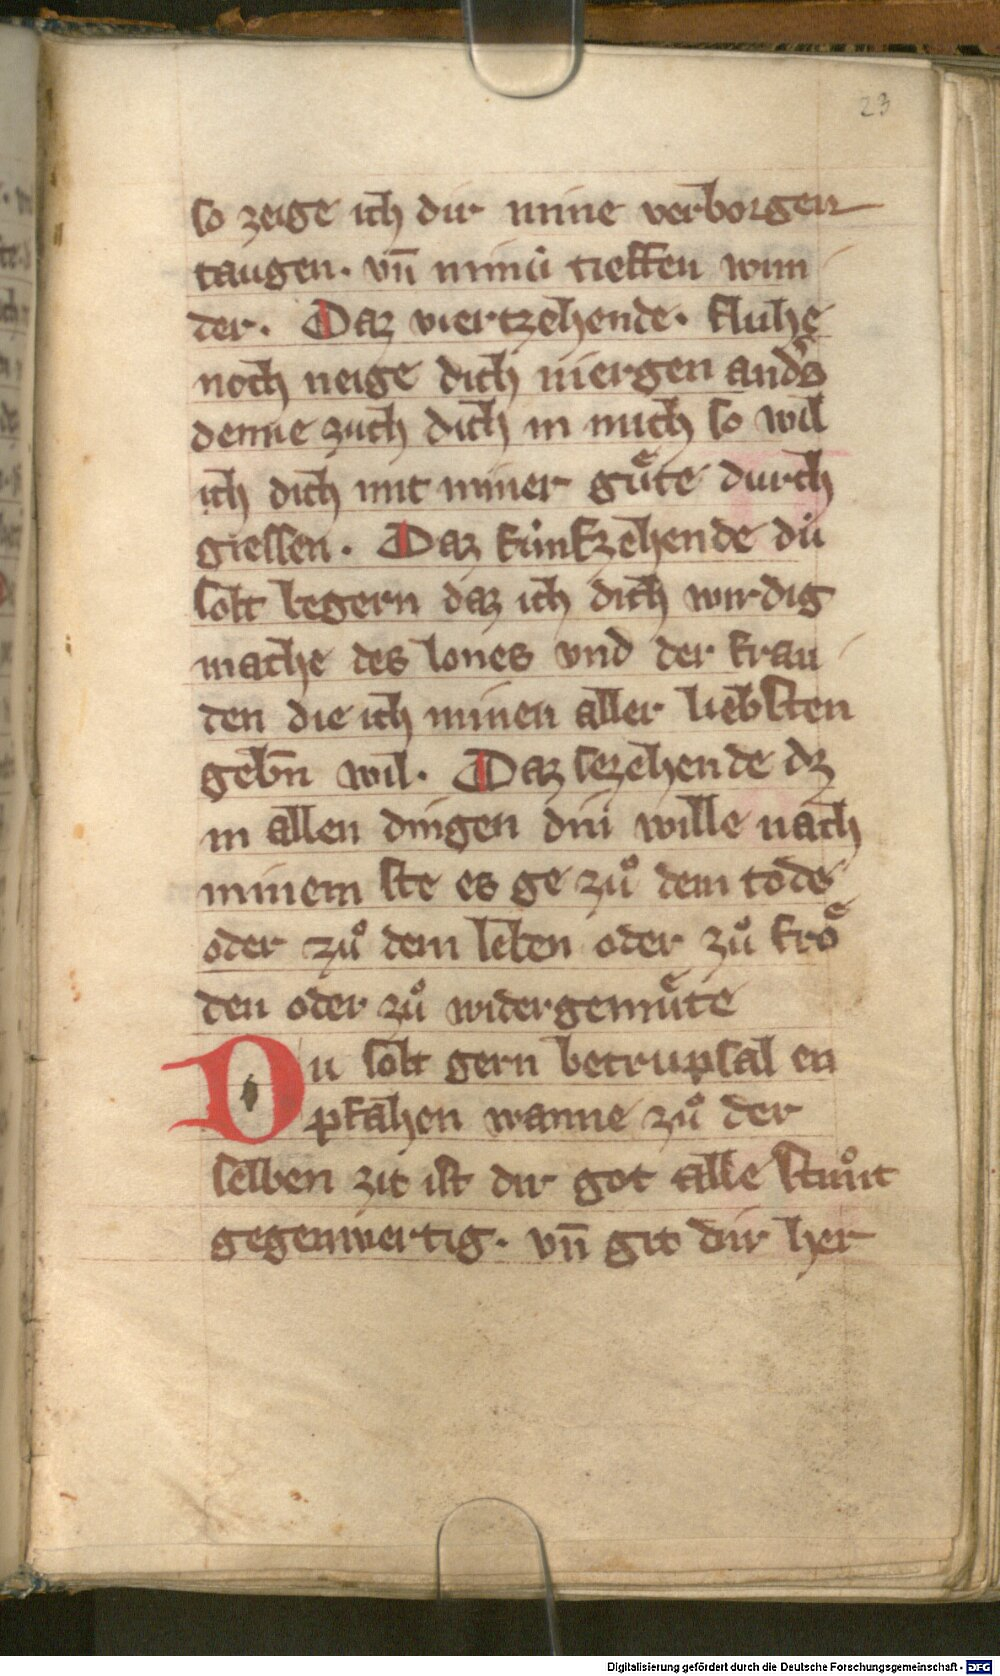 23
so zeige ich dir mine verborgen
taugen. vn̄ minú tieffen wun
der. Daz viertzehende. fluhe
noch neige dich niergen ands
denne zuch dich in mich so wil
ich dich mit miner guͤte durch
giessen. Daz fúnfzehende dú
solt begern daz ich dich wirdig
mache des lones vnd der frau
den die ich minen aller liebsten
gebn̄ wil. Daz sezehende dz
in allen dingen din wille nach
minem ste es ge zuͦ dem tode
oder zuͦ dem leben oder zuͦ froͤ
den oder zuͦ widergemuͤte
Du solt gern betrupsal en
pfahen wanne zuͦ der
selben zit ist dir got alle stunt
gegenwertig. vn̄ git dir her
Digitalisierung gefördert durch die Deutsche Forschungsgemeinschaft - DFG